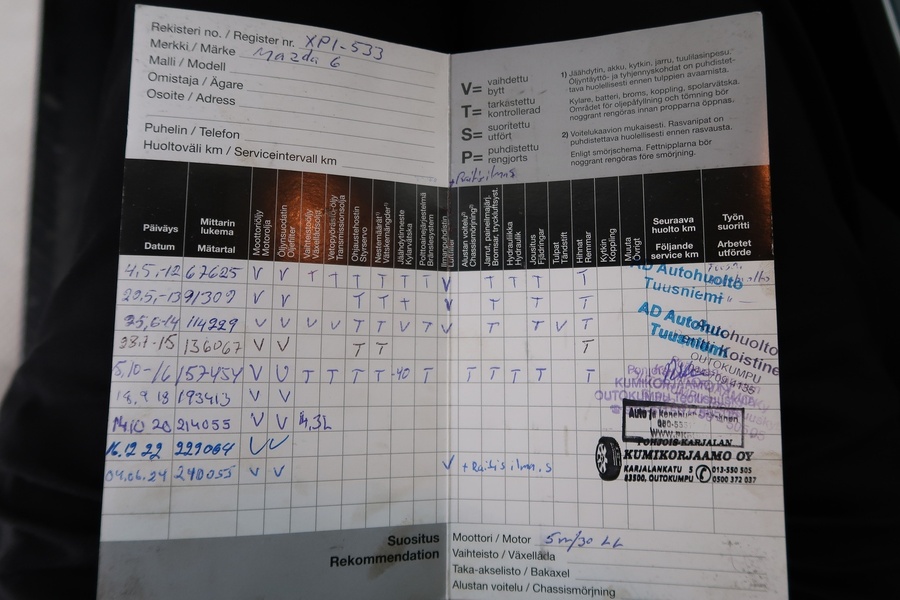 Rekisteri no. / Register nr. XPI-533
Merkki / Märke Mazda 6
Malli / Modell
Omistaja / Ägare
Osoite / Adress
Puhelin / Telefon
Huoltoväli km / Serviceintervall km
V= vaihdettu
bytt
T= tarkastettu
kontrollerad
S= suoritettu
utfört
P= puhdistettu
rengjorts
1) Jäähdytin, akku, kytkin, jarru, tuulilasinpesu:
Öljyntäyttö- ja tyhjennyskohdat on puhdistet-
tava huolellisesti ennen tulppien avaamista.
Kylare, batteri, broms, koppling, spolarvätska.
Området för oljepåfyllning och tömning bör
noggrant rengöras innan propparna öppnas.
2) Voitelukaavion mukaisesti. Rasvanipat on
puhdistettava huolellisesti ennen rasvausta.
Enligt smörjschema. Fettnipplarna bör
noggrant rengöras före smörjning.
+Raitisilmas
Päiväys
Datum
Mittarin
lukema
Mätartal
Moottoriöljy
Motorolja
Öljynsuodatin
Oljefilter
Vaihteistoöljy
Växellådsolja
Vetopyörästön öljy
Transmissionsolja
Ohjaustehostin
Styrservo
Nestemäärät 1)
Vätskemängder 1)
Jäähdytinneste
Kylarvätska
Polttoainejärjestelmä
Bränslesystem
Ilmanpuhdistin
Luftfilter
Alustan voitelu 2)
Chassismörjning 2)
Jarrut, paineilmajärj.
Bromsar, tryckluftsyst.
Hydrauliikka
Hydraulik
Jousitus
Fjädringar
Tulpat
Tändstift
Hihnat
Remmar
Kytkin
Koppling
Muuta
Övrigt
Seuraava
huolto km
Följande
service km
Työn
suoritti
Arbetet
utförde
4.5.-12 67625 V V T T T T T T V T T T T
20.5,-13 91309 V V T T + V T T T
25,6-14 114229 V V V V T T V T V T T V T
136067 V V T T
5,10-16 157454 V V T T T T -40 T T T T T T
18,9 18 193413 V V
14,10 20 214055 V V 4,3L
16.12.22 229064 V V
04.06.24 240055 V V V + Raitisilm.s
AD Autohuolto
Tuusniemi
AD Autohuolto
Tuusniemi
OUTOKUMPU
POHJOIS-KARJALAN
KUMIKORJAAMO OY
KARJALANKATU 5 013-550 505
83500, OUTOKUMPU 0500 372 037
Suositus
Rekommendation
Moottori / Motor 5w/30 LL
Vaihteisto / Växellåda
Taka-akselisto / Bakaxel
Alustan voitelu / Chassismörjning